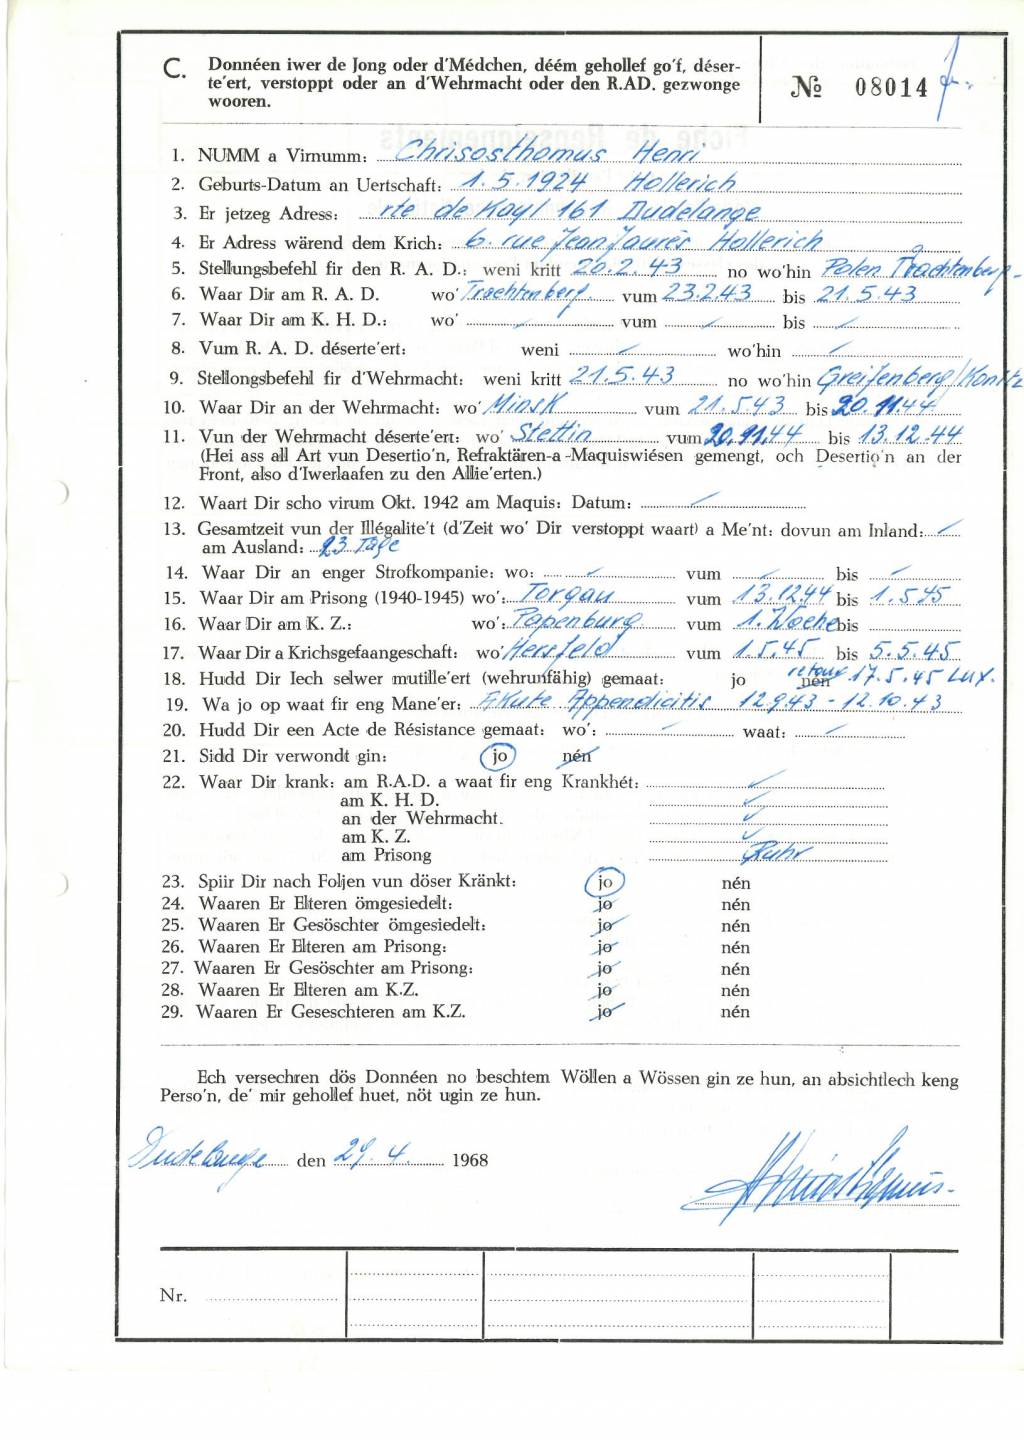 C. Donnéen iwer de Jong oder d'Médchen, déém gehollef go'f, déser-
te'ert, verstoppt oder an d'Wehrmacht oder den R.AD. gezwonge
wooren.
№ 08014
1. NUMM a Virnumm: Chrisosthomus Henri
2. Geburts-Datum an Uertschaft: 1.5.1924 Hollerich
3. Er jetzeg Adress: rte de Kayl 161 Dudelange
4. Er Adress wärend dem Krich: 6. rue Jean Jaurès Hollerich
5. Stellungsbefehl fir den R. A. D.: weni kritt 20.2.43 no wo'hin Polen Trachtenberg-
6. Waar Dir am R. A. D. wo' Trachtenberg. vum 23.2.43 bis 21.5.43
7. Waar Dir am K. H. D.: wo' vum bis
8. Vum R. A. D. déserte'ert: weni wo'hin
9. Stellongsbefehl fir d'Wehrmacht: weni kritt 21.5.43 no wo'hin Greifenberg/Konitz
10. Waar Dir an der Wehrmacht: wo' Minsk vum 21.5.43 bis 20.11.44
11. Vun der Wehrmacht déserte'ert: wo' Stettin vum 20.11.44 bis 13.12.44
(Hei ass all Art vun Desertio'n, Refraktären-a -Maquiswiésen gemengt, och Desertio'n an der
Front, also d'Iwerlaafen zu den Allie'erten.)
12. Waart Dir scho virum Okt. 1942 am Maquis: Datum:
13. Gesamtzeit vun der Illégalite't (d'Zeit wo' Dir verstoppt waart) a Me'nt: dovun am Inland:
am Ausland: 23 Tage
14. Waar Dir an enger Strofkompanie: wo: vum bis
15. Waar Dir am Prisong (1940-1945) wo': Torgau vum 13.12.44 bis 1.5.45
16. Waar Dir am K. Z.: wo': Papenburg vum 1. Woche bis
17. Waar Dir a Krichsgefaangeschaft: wo' Hersfeld vum 1.5.45 bis 5.5.45
18. Hudd Dir Iech selwer mutille'ert (wehrunfähig) gemaat: jo nén retour 17.5.45 Lux.
19. Wa jo op waat fir eng Mane'er: Akute Appendicitis 12.9.43 - 12.10.43
20. Hudd Dir een Acte de Résistance gemaat: wo': waat:
21. Sidd Dir verwondt gin: jo nén
22. Waar Dir krank: am R.A.D. a waat fir eng Krankhét:
am K. H. D.
an der Wehrmacht.
am K. Z.
am Prisong Ruhr
23. Spiir Dir nach Foljen vun döser Kränkt: jo nén
24. Waaren Er Elteren ömgesiedelt: jo nén
25. Waaren Er Gesöschter ömgesiedelt: jo nén
26. Waaren Er Elteren am Prisong: jo nén
27. Waaren Er Gesöschter am Prisong: jo nén
28. Waaren Er Elteren am K.Z. jo nén
29. Waaren Er Geseschteren am K.Z. jo nén
Ech versechren dös Donnéen no beschtem Wöllen a Wössen gin ze hun, an absichtlech keng
Perso'n, de' mir gehollef huet, nöt ugin ze hun.
Dudelange den 29.4. 1968
Nr.